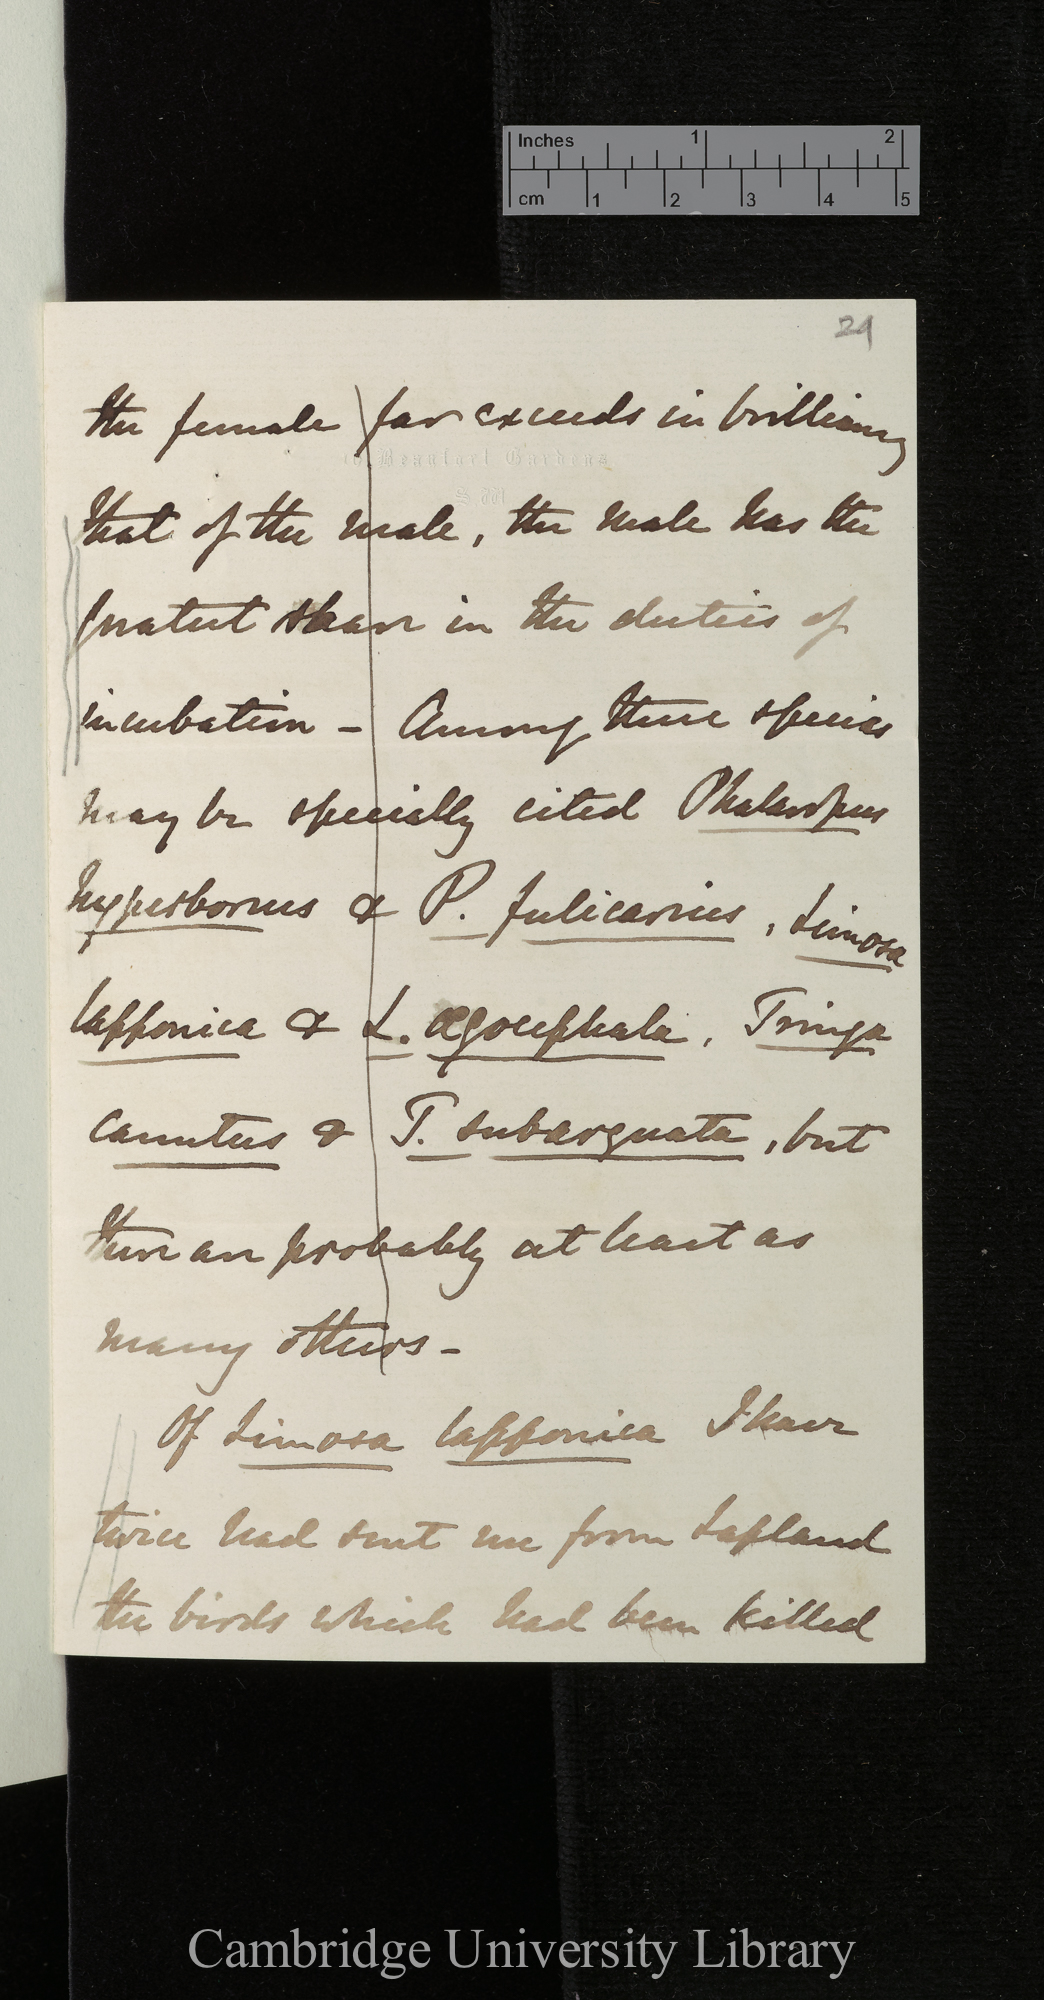 Inches 1 2
cm 1 2 3 4 5
29
the female far exceeds in brilliancy
Beaufort Gardens
S.W.
that of the male, the male has the
greatest share in the duties of
incubation – Among these species
may be specially cited Phalaropus
hyperboreus & P. fulicarius, Limosa
lapponica & L. ægocephala, Tringa
canutus & T. subarquata, but
there are probably at least as
many others –
Of Limosa lapponica I have
twice had sent me from Lapland
the birds which had been killed
Cambridge University Library